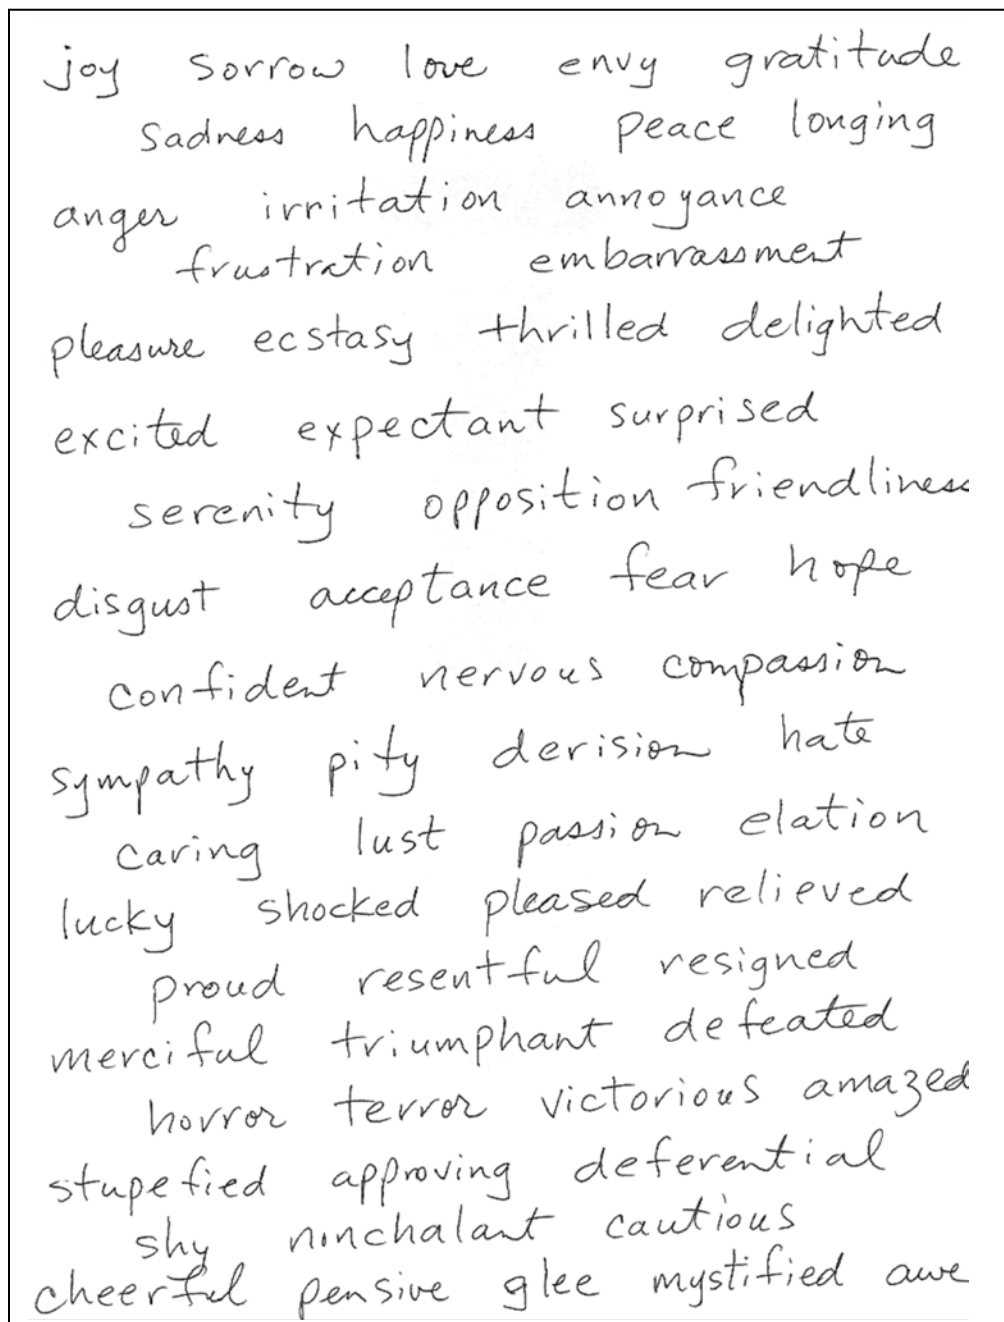 joy sorrow love envy gratitude
sadness happiness peace longing
anger irritation annoyance
frustration embarrassment
pleasure ecstasy thrilled delighted
excited expectant surprised
serenity opposition friendliness
disgust acceptance fear hope
confident nervous compassion
sympathy pity derision hate
caring lust passion elation
lucky shocked pleased relieved
proud resentful resigned
merciful triumphant defeated
horror terror victorious amazed
stupefied approving deferential
shy nonchalant cautious
cheerful pensive glee mystified awe